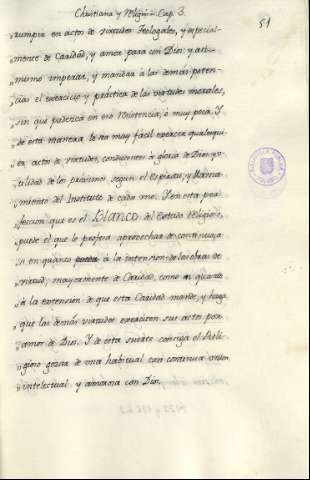 Christiana y Religiosa Cap. 3.
51
"rumpa en actos de virtudes Teologales, y especial-
"mente de Caridad, y amor para con Dios: y assi
"mismo imperar, y mandar à las demás poten-
"cias el exercicio y práctica de las virtudes morales,
"sin que padezca en ello resistencia, ò muy poca. Y
"de esta manera le sea muy fácil exercer qualquie-
"ra acto de virtudes, conducente à gloria de Dios, y u-
"tilidad de los próximos, segun el Espíritu, y llama-
"miento del Instituto de cada uno. Y en esta per-
"feccion que es el Blanco del Estado Religioso,
"puede el que le profesa aprovechar de continuo; a-
"si en quanto à la intension de las obras de
"virtud, mayormente de Caridad, como en quanto
"à la extension de que esta Caridad mande, y haga
"que las demás virtudes exerciten sus actos por
"amor de Dios. Y de esta suerte consiga el Reli-
"gioso gozar de una habitual casi continua union
"intelectual y amorosa con Dios.